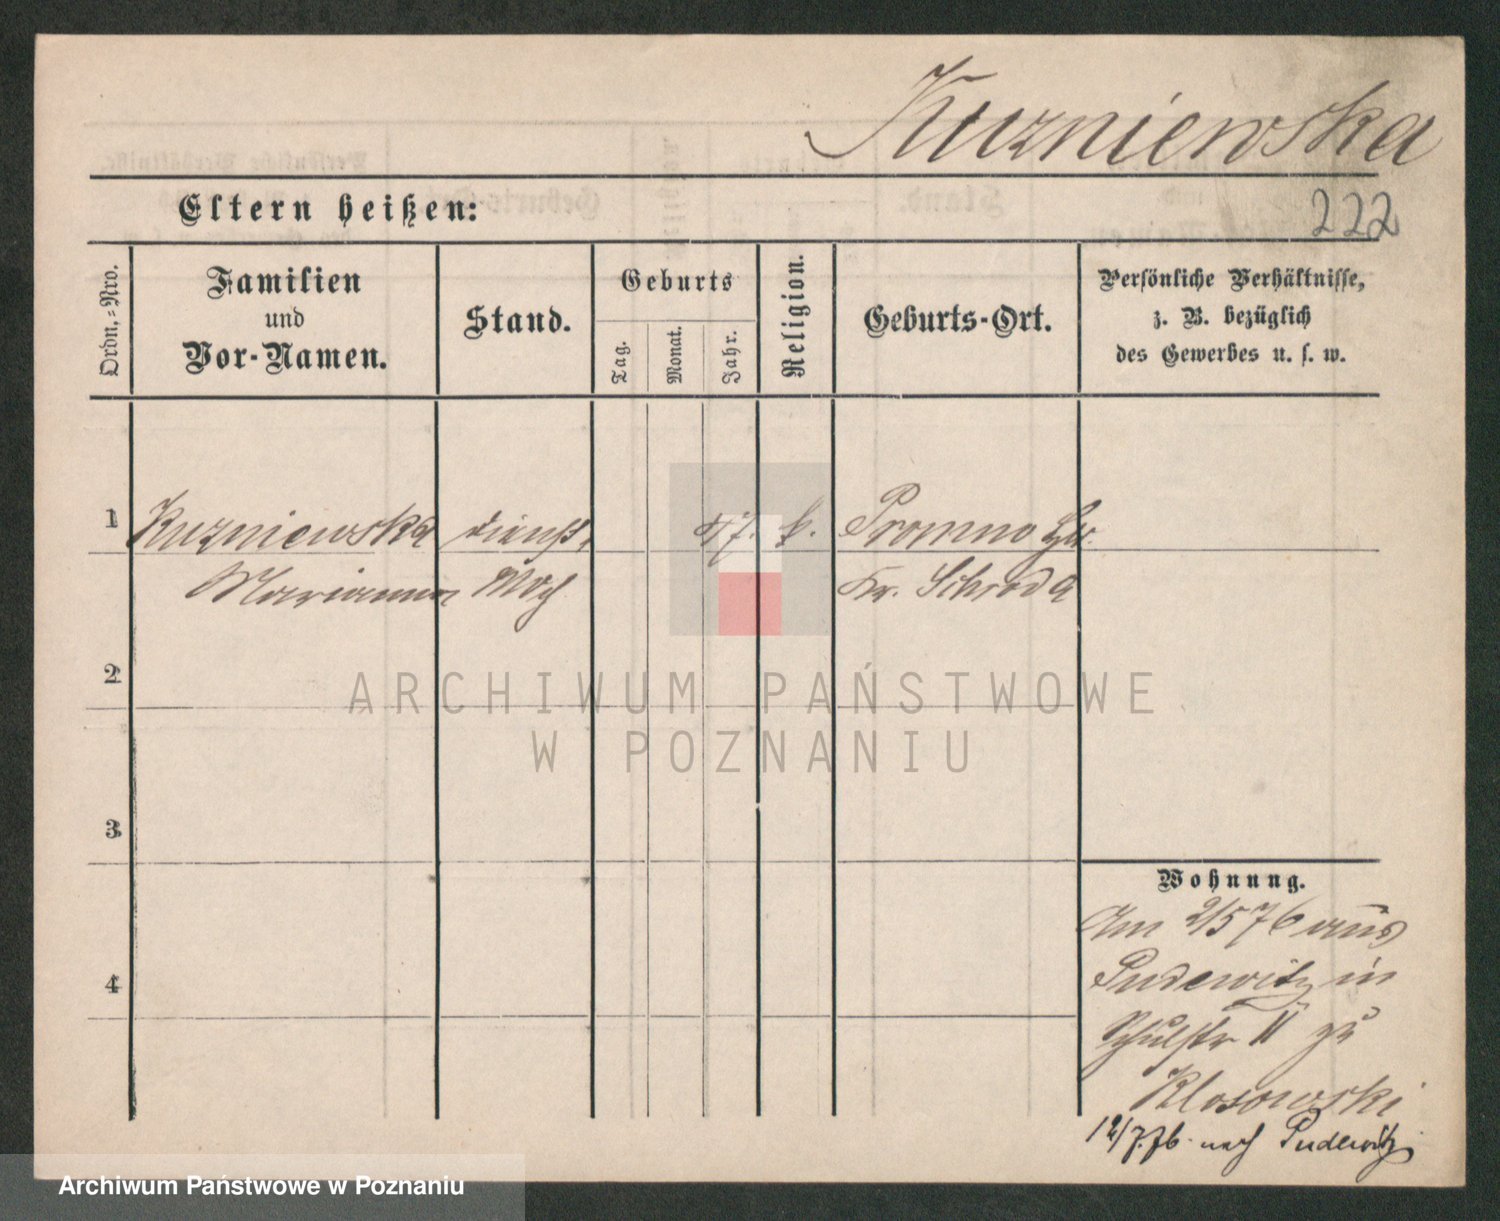 Kuzniewska
Eltern heißen:
222
Ordn.-Nro.
Familien
und
Vor-Namen.
Stand.
Geburts
Tag.
Monat.
Jahr.
Religion.
Geburts-Ort.
Persönliche Verhältnisse,
z. B. bezüglich
des Gewerbes u. s. w.
1
Kuzniewska
Marianna
dienst
Mdch
57.
k.
Promno
Kr. Schroda
2
3
4
Wohnung.
Am 2/5 76 aus
Pudewitz in
Schulstr 11 zu
Klosowski
12/7.76. nach Pudewitz
ARCHIWUM PAŃSTWOWE
W POZNANIU
Archiwum Państwowe w Poznaniu